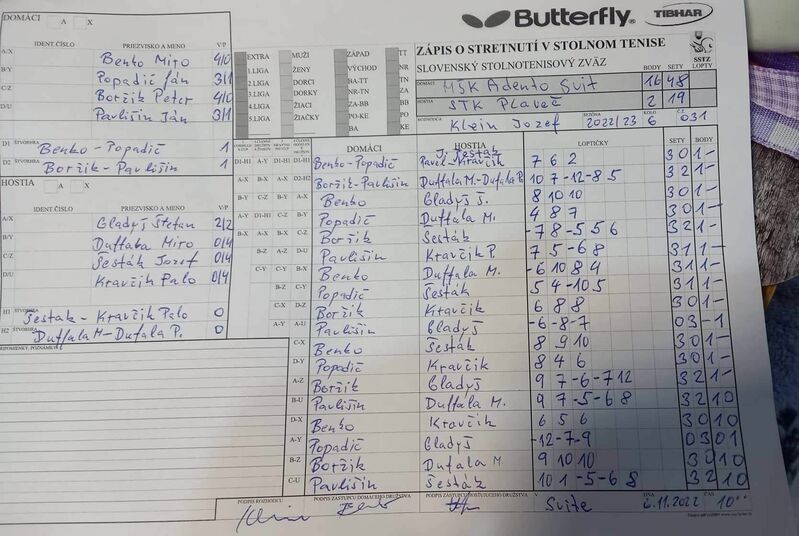 DOMÁCI A X
Butterfly TIBHAR
IDENT.ČÍSLO PRIEZVISKO A MENO V/P
A/X Benko Miro 4/0
B/Y Popadič Ján 3/1
C/Z Boržík Peter 4/0
D/U Pavlišin Ján 3/1
D1 ŠTVORHRA Benko - Popadič 1
D2 ŠTVORHRA Boržik - Pavlišin 1
HOSTIA A X
IDENT.ČÍSLO PRIEZVISKO A MENO V/P
A/X Gladyš Štefan 2/2
B/Y Duffala Miro 0/4
C/Z Šesták Jozef 0/4
D/U Kravčik Palo 0/4
H1 ŠTVORHRA Šesták - Kravčik Palo 0
H2 ŠTVORHRA Duffala M - Dufala P. 0
PRIPOMIENKY, POZNÁMKY
EXTRA MUŽI ZÁPAD TT
1.LIGA ŽENY VÝCHOD NR
2.LIGA DORCI BA-TT TN
3.LIGA DORKY NR-TN ZA
4.LIGA ŽIACI ZA-BB BB
5.LIGA ŽIAČKY PO-KE PO
BA KE
ZÁPIS O STRETNUTÍ V STOLNOM TENISE
SLOVENSKÝ STOLNOTENISOVÝ ZVÄZ
SSTZ
BODY SETY LOPTY
DOMÁCI MŠK Adento Svit 16 48
HOSTIA STK Plaveč 2 19
ROZHODCA Klein Jozef SEZÓNA 2022/23 KOLO 6 Č.S. 031
DOMÁCI HOSTIA LOPTIČKY SETY BODY
D1-H1 A-Y A-X D1-H1 Benko - Popadič J. Šesták Pavel - Kravčik 7 6 2 3 0 1 -
A-X B-X A-X D2-H2 Boržik - Pavlišin Duffala M. - Dufala P. 10 7 -12 -8 5 3 2 1 -
B-Y C-Z B-Y A-X Benko Gladyš Š. 8 10 10 3 0 1 -
A-Y D1-H1 C-Z B-Y Popadič Duffala M. 4 8 7 3 0 1 -
B-X A-X Boržik Šesták -7 8 -5 5 6 3 2 1 -
B-Z A-Z D-U Pavlišin Kravčik P. 7 5 -6 8 3 1 1 -
C-Y B-X Benko Duffala M. -6 10 8 4 3 1 1 -
B-Z C-Y Popadič Šesták 5 4 -10 5 3 1 1 -
C-X D-Z Boržik Kravčik 6 8 8 3 0 1 -
A-Y A-U Pavlišin Gladyš -6 -8 -7 0 3 - 1
C-X Benko Šesták 8 9 10 3 0 1 -
D-Y Popadič Kravčik 8 4 6 3 0 1 -
A-Z Boržik Gladyš 9 7 -6 -7 12 3 2 1 -
B-U Pavlišin Duffala M. 9 7 -5 -6 8 3 2 1 0
D-X Benko Kravčik 6 5 6 3 0 1 0
A-Y Popadič Gladyš -12 -7 -9 0 3 0 1
B-Z Boržik Dufala M 9 10 10 3 0 1 0
C-U Pavlišin Šesták 10 1 -5 -6 8 3 2 1 0
PODPIS ROZHODCU PODPIS ZÁSTUPCU DOMÁCEHO DRUŽSTVA PODPIS ZÁSTUPCU HOSŤUJÚCEHO DRUŽSTVA V Svite DŇA .11.2022 ČAS 10°°